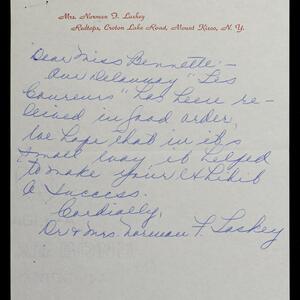 Mrs. Norman F. Laskey
Redtops, Croton Lake Road, Mount Kisco, N. Y.
Dear Miss Bennette:-
Our Delaunay "Les
Coureurs" has been re-
ceived in good order,
we hope that in its
small way it helped
to make your exhibit
a success.
Cordially,
Dr & Mrs. Norman F Laskey